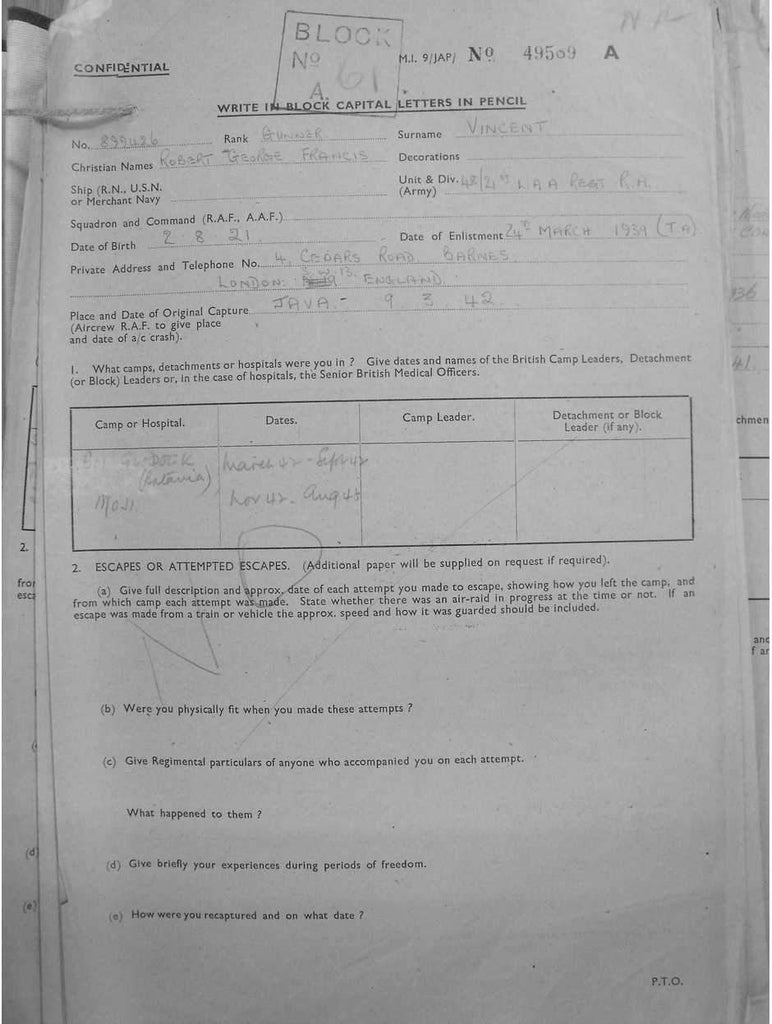 BLOCK
No
A. 61
CONFIDENTIAL
M.I. 9/JAP/ No 49509 A
WRITE IN BLOCK CAPITAL LETTERS IN PENCIL
No. 899426 Rank GUNNER Surname VINCENT
Christian Names ROBERT GEORGE FRANCIS Decorations
Ship (R.N., U.S.N. or Merchant Navy
Unit & Div. (Army) 48/21st L A A REGT R.A.
Squadron and Command (R.A.F., A.A.F.)
Date of Birth 2. 8. 21. Date of Enlistment 24th MARCH 1939 (T.A)
Private Address and Telephone No. 4, CEDARS ROAD BARNES
LONDON: S.W.13. ENGLAND
Place and Date of Original Capture JAVA - 9 3 42.
(Aircrew R.A.F. to give place
and date of a/c crash).
1. What camps, detachments or hospitals were you in ? Give dates and names of the British Camp Leaders, Detachment
(or Block) Leaders or, in the case of hospitals, the Senior British Medical Officers.
Camp or Hospital. Dates. Camp Leader. Detachment or Block Leader (if any).
(Batavia) March 42 - Sept 42
MOJI Nov 42 - Aug 45
2. ESCAPES OR ATTEMPTED ESCAPES. (Additional paper will be supplied on request if required).
(a) Give full description and approx. date of each attempt you made to escape, showing how you left the camp, and
from which camp each attempt was made. State whether there was an air-raid in progress at the time or not. If an
escape was made from a train or vehicle the approx. speed and how it was guarded should be included.
(b) Were you physically fit when you made these attempts ?
(c) Give Regimental particulars of anyone who accompanied you on each attempt.
What happened to them ?
(d) Give briefly your experiences during periods of freedom.
(e) How were you recaptured and on what date ?
P.T.O.